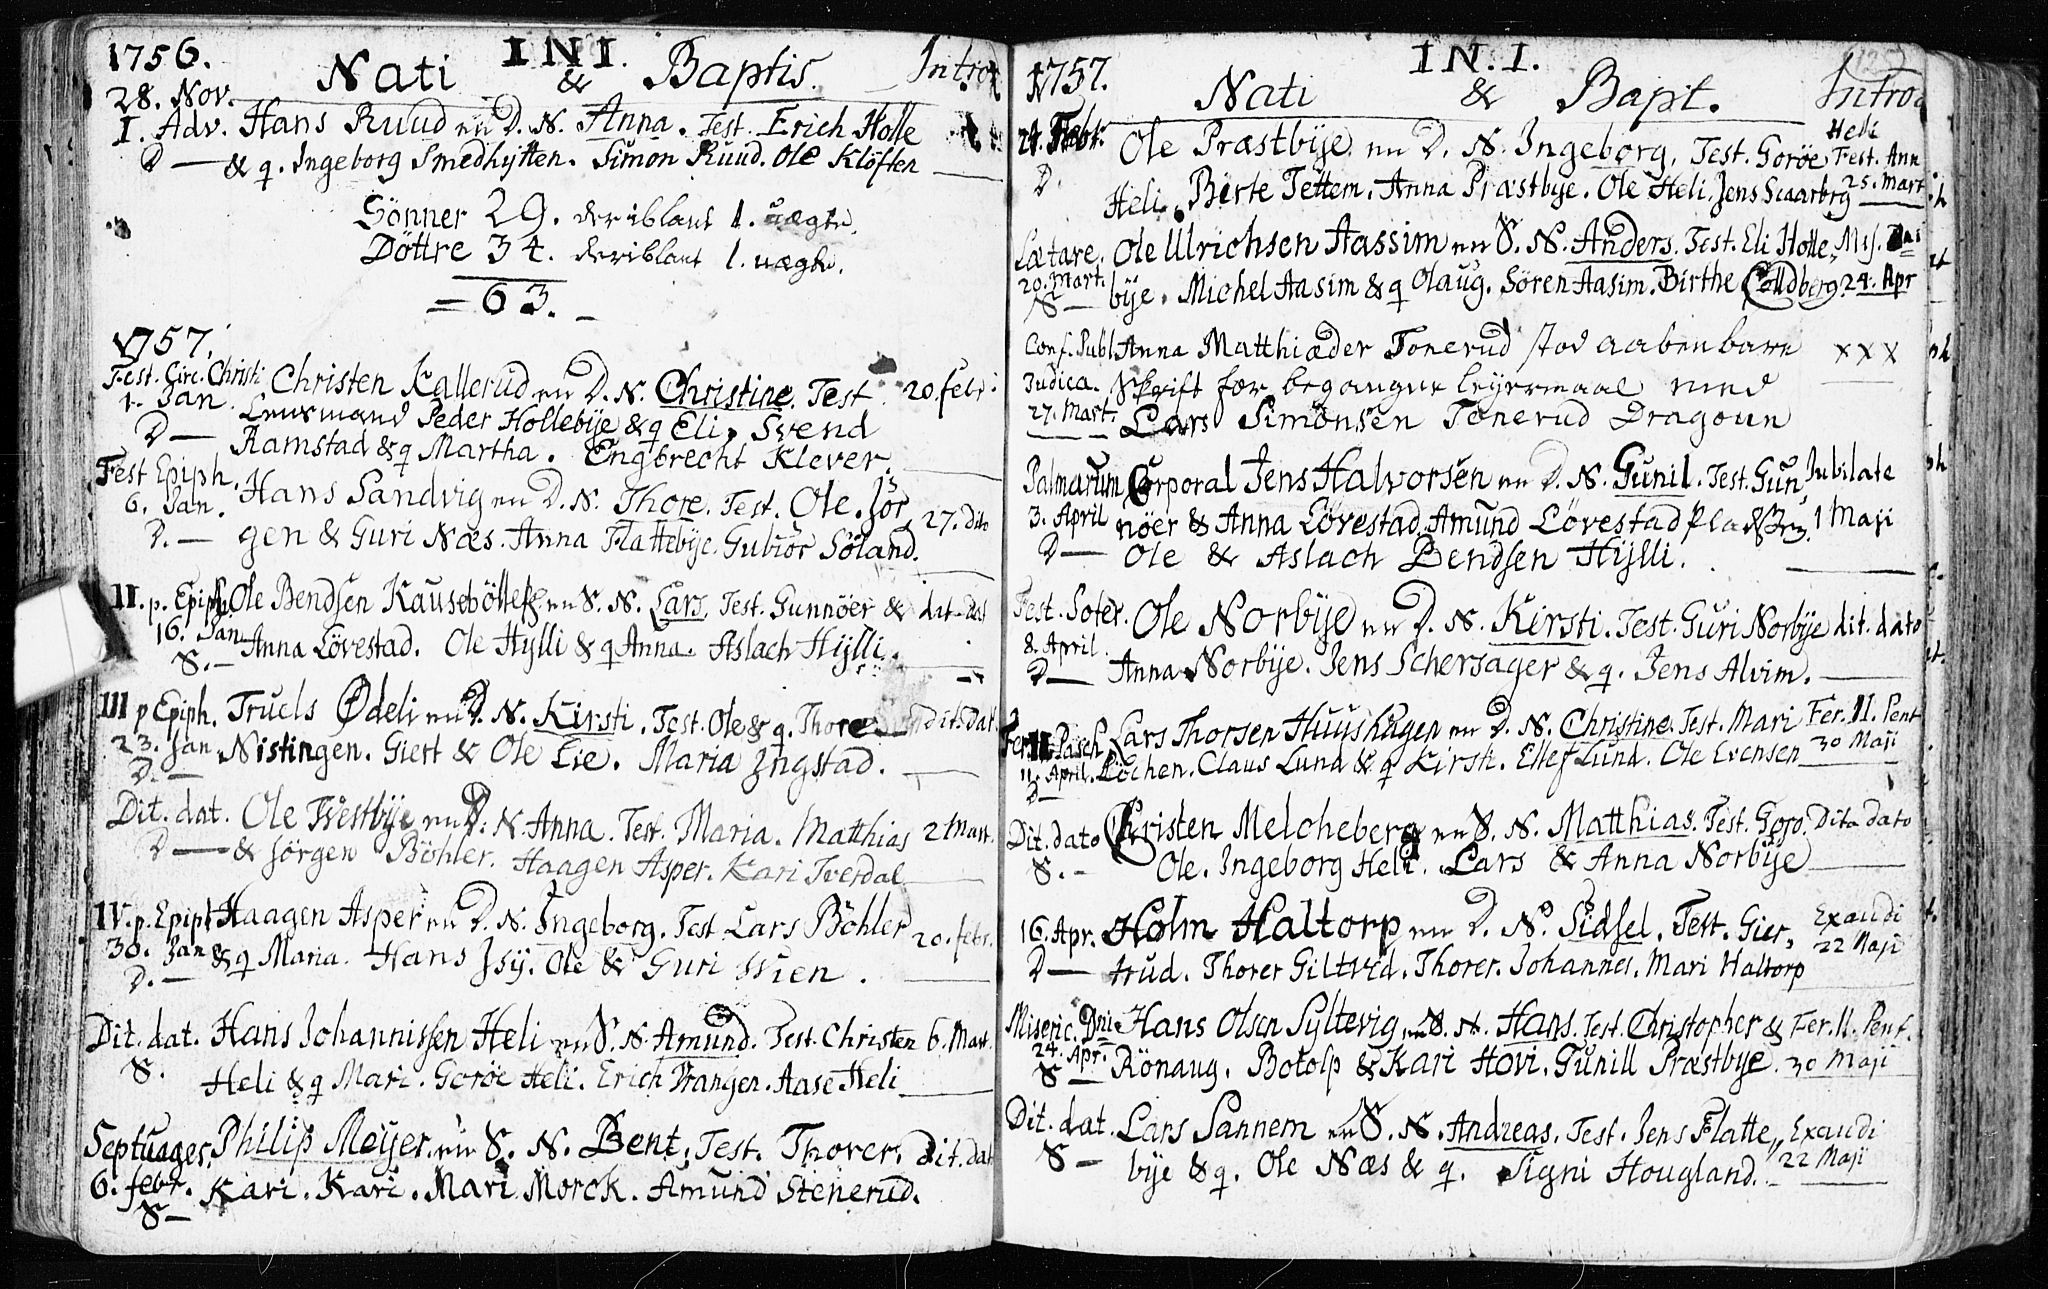 1756. I N I.
Nati & Baptis. Introd
28. Nov.
I. Adv. Hans Ruud en D. N. Anna. Test. Erich Holle
D — & q. Ingeborg Smedhytten. Simon Ruud. Ole Klöften
Sönner 29. deriblant 1. uægte.
Döttre 34. deriblant 1. uægte.
= 63. –
1757.
Fest. Circ. Christi Christen Kallerud en D. N. Christine. Test. 20. febr.
1. Jan. Lensmand Peder Hollebye & q Eli. Svend
D — Ramstad & q Martha. Engbrecht Klever.
Fest Epiph. Hans Sandvig en D. N. Thore. Test. Ole. Jör
6. Jan. gen & Guri Næs. Anna Flattebye. Gubiör Söland. 27. dito
D. —
II. p. Epiph. Ole Bendsen Kausebölles en S. N. Lars. Test. Gunnöer & dit. dat
16. Jan. Anna Lövestad. Ole Hylli & q Anna. Aslach Hylli.
S. —
III p Epiph. Truels Ødeli en D. N. Kirsti. Test. Ole & q. Thore dit. dat.
23. Jan Nistingen. Giert & Ole Lie. Maria Ingstad.
D. —
Dit. dat. Ole Westbye en D. N. Anna. Test. Maria. Matthias 2 Mart.
D — & Jörgen Böhler. Haagen Asper. Kari Tverdal
IV. p. Epiph Haagen Asper en D. N. Ingeborg. Test Lars Böhler 20. febr.
30. Jan & q Maria. Hans Isy. Ole & Guri Wien.
D. —
Dit. dat. Hans Johannissen Heli en S. N. Amund. Test. Christen 6. Mart.
S. Heli & q Mari. Goröe Heli. Erich Vrangen. Aase Heli
Septuages. Philip Meyer en S. N. Bent. Test. Thorer. dit. dat
6. febr. Kari. Kari. Mari Morck. Amund Stenerud.
S —
1757. I N. I.
Nati & Bapt. Introd
24. Febr. Ole Præstbye en D. N. Ingeborg. Test. Goröe Heli Fest. Ann
D Heli. Birte Tettem. Anna Præstbye. Ole Heli. Jens Scaarbrg 25. Mart
Lætare. Ole Ulrichsen Aassim en S. N. Anders. Test. Eli Holle Mis.
20. Mart. bye. Michel Aasim & q Olaug. Sören Aasim. Birthe Colldberg. 24. Apr
S —
Conf. Publ. Anna Matthiæder Tonerud stod aabenbare x x x
Judica. Skrift for begangne leyermaal med
27. Mart. Lars Simonsen Tonerud Dragoun
Palmarum Corporal Jens Halvorsen en D. N. Gunil. Test. Gun Jubilate
3. April nöer & Anna Lövestad. Amund Lövestad 1 Maji
D — Ole & Aslach Bendsen Hylli.
Fest. Soter. Ole Norbye en D. N. Kirsti. Test. Guri Norbye dit. dato
8. April. Anna Norbye. Jens Schersager & q. Jens Alvim.
D —
Fer. II. Pasch. Lars Thorsen Huushagen en D. N. Christine. Test. Mari Fer. II. Pent
11. April. Löchen. Claus Lund & q Kirsti. Ellef Lund. Ole Evensen 30 Maji
D —
Dit. dato Christen Melcheberg en S. N. Matthias. Test. Goro. Dito dato
S. – Ole. Ingeborg Heli. Lars & Anna Norbye
16. Apr. Holm Haltorp en D. N. Sidsel. Test. Gier Exaudi
D — trud. Thorer Giltvid. Thorer. Johannes. Mari Haltorp 22 Maji
Miseric. Dni Hans Olsen Syltevig en S. N. Hans. Test. Christopher & Fer. II. Pent.
24. Apr. Rönaug. Botolp & Kari Hovi. Gunill Præstbye. 30 Maji
S —
Dit. dat. Lars Sannem en S. N. Andreas. Test. Jens Flatte Exaudi
S – bye & q. Ole Næs & q. Signi Hougland. 22 Maji